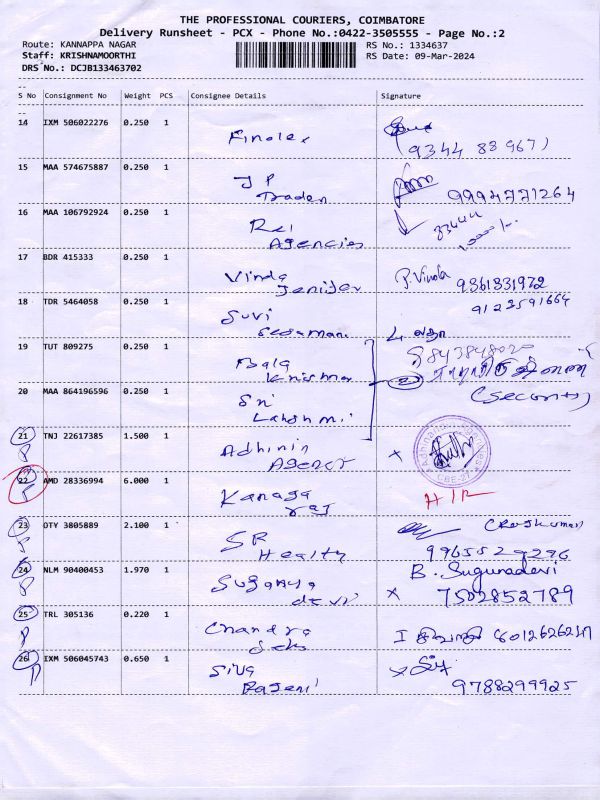 THE PROFESSIONAL COURIERS, COIMBATORE
Delivery Runsheet - PCX - Phone No.:0422-3505555 - Page No.:2
Route: KANNAPPA NAGAR
RS No.: 1334637
Staff: KRISHNAMOORTHI
RS Date: 09-Mar-2024
DRS No.: DCJB133463702
S No Consignment No Weight PCS Consignee Details Signature
14 IXM 506022276 0.250 1
Finolex
(9344 88 967)
15 MAA 574675887 0.250 1
JP
Traders
9994771264
16 MAA 106792924 0.250 1
Rel
Agencies
17 BDR 415333 0.250 1
Vinda
Jenifer
P. Vinola 9361831972
18 TDR 5464058 0.250 1
Suvi
9123591664
லதா
19 TUT 809275 0.250 1
Bala
Krishna
20 MAA 864196596 0.250 1
Sri
Lakshmi
(Security)
21 TNJ 22617385 1.500 1
Adhinin
Agency
X
CBE-27
22 AMD 28336994 6.000 1
Kanaga
raj
23 OTY 3805889 2.100 1
SR
Healty
(Rajkumar)
9965529296
24 NLM 90400453 1.970 1
Suganya
devi
B. Sugunadevi
X 7502852789
25 TRL 305136 0.220 1
Chandra
26 IXM 506045743 0.650 1
Siva
Rajeni
X
9788299925